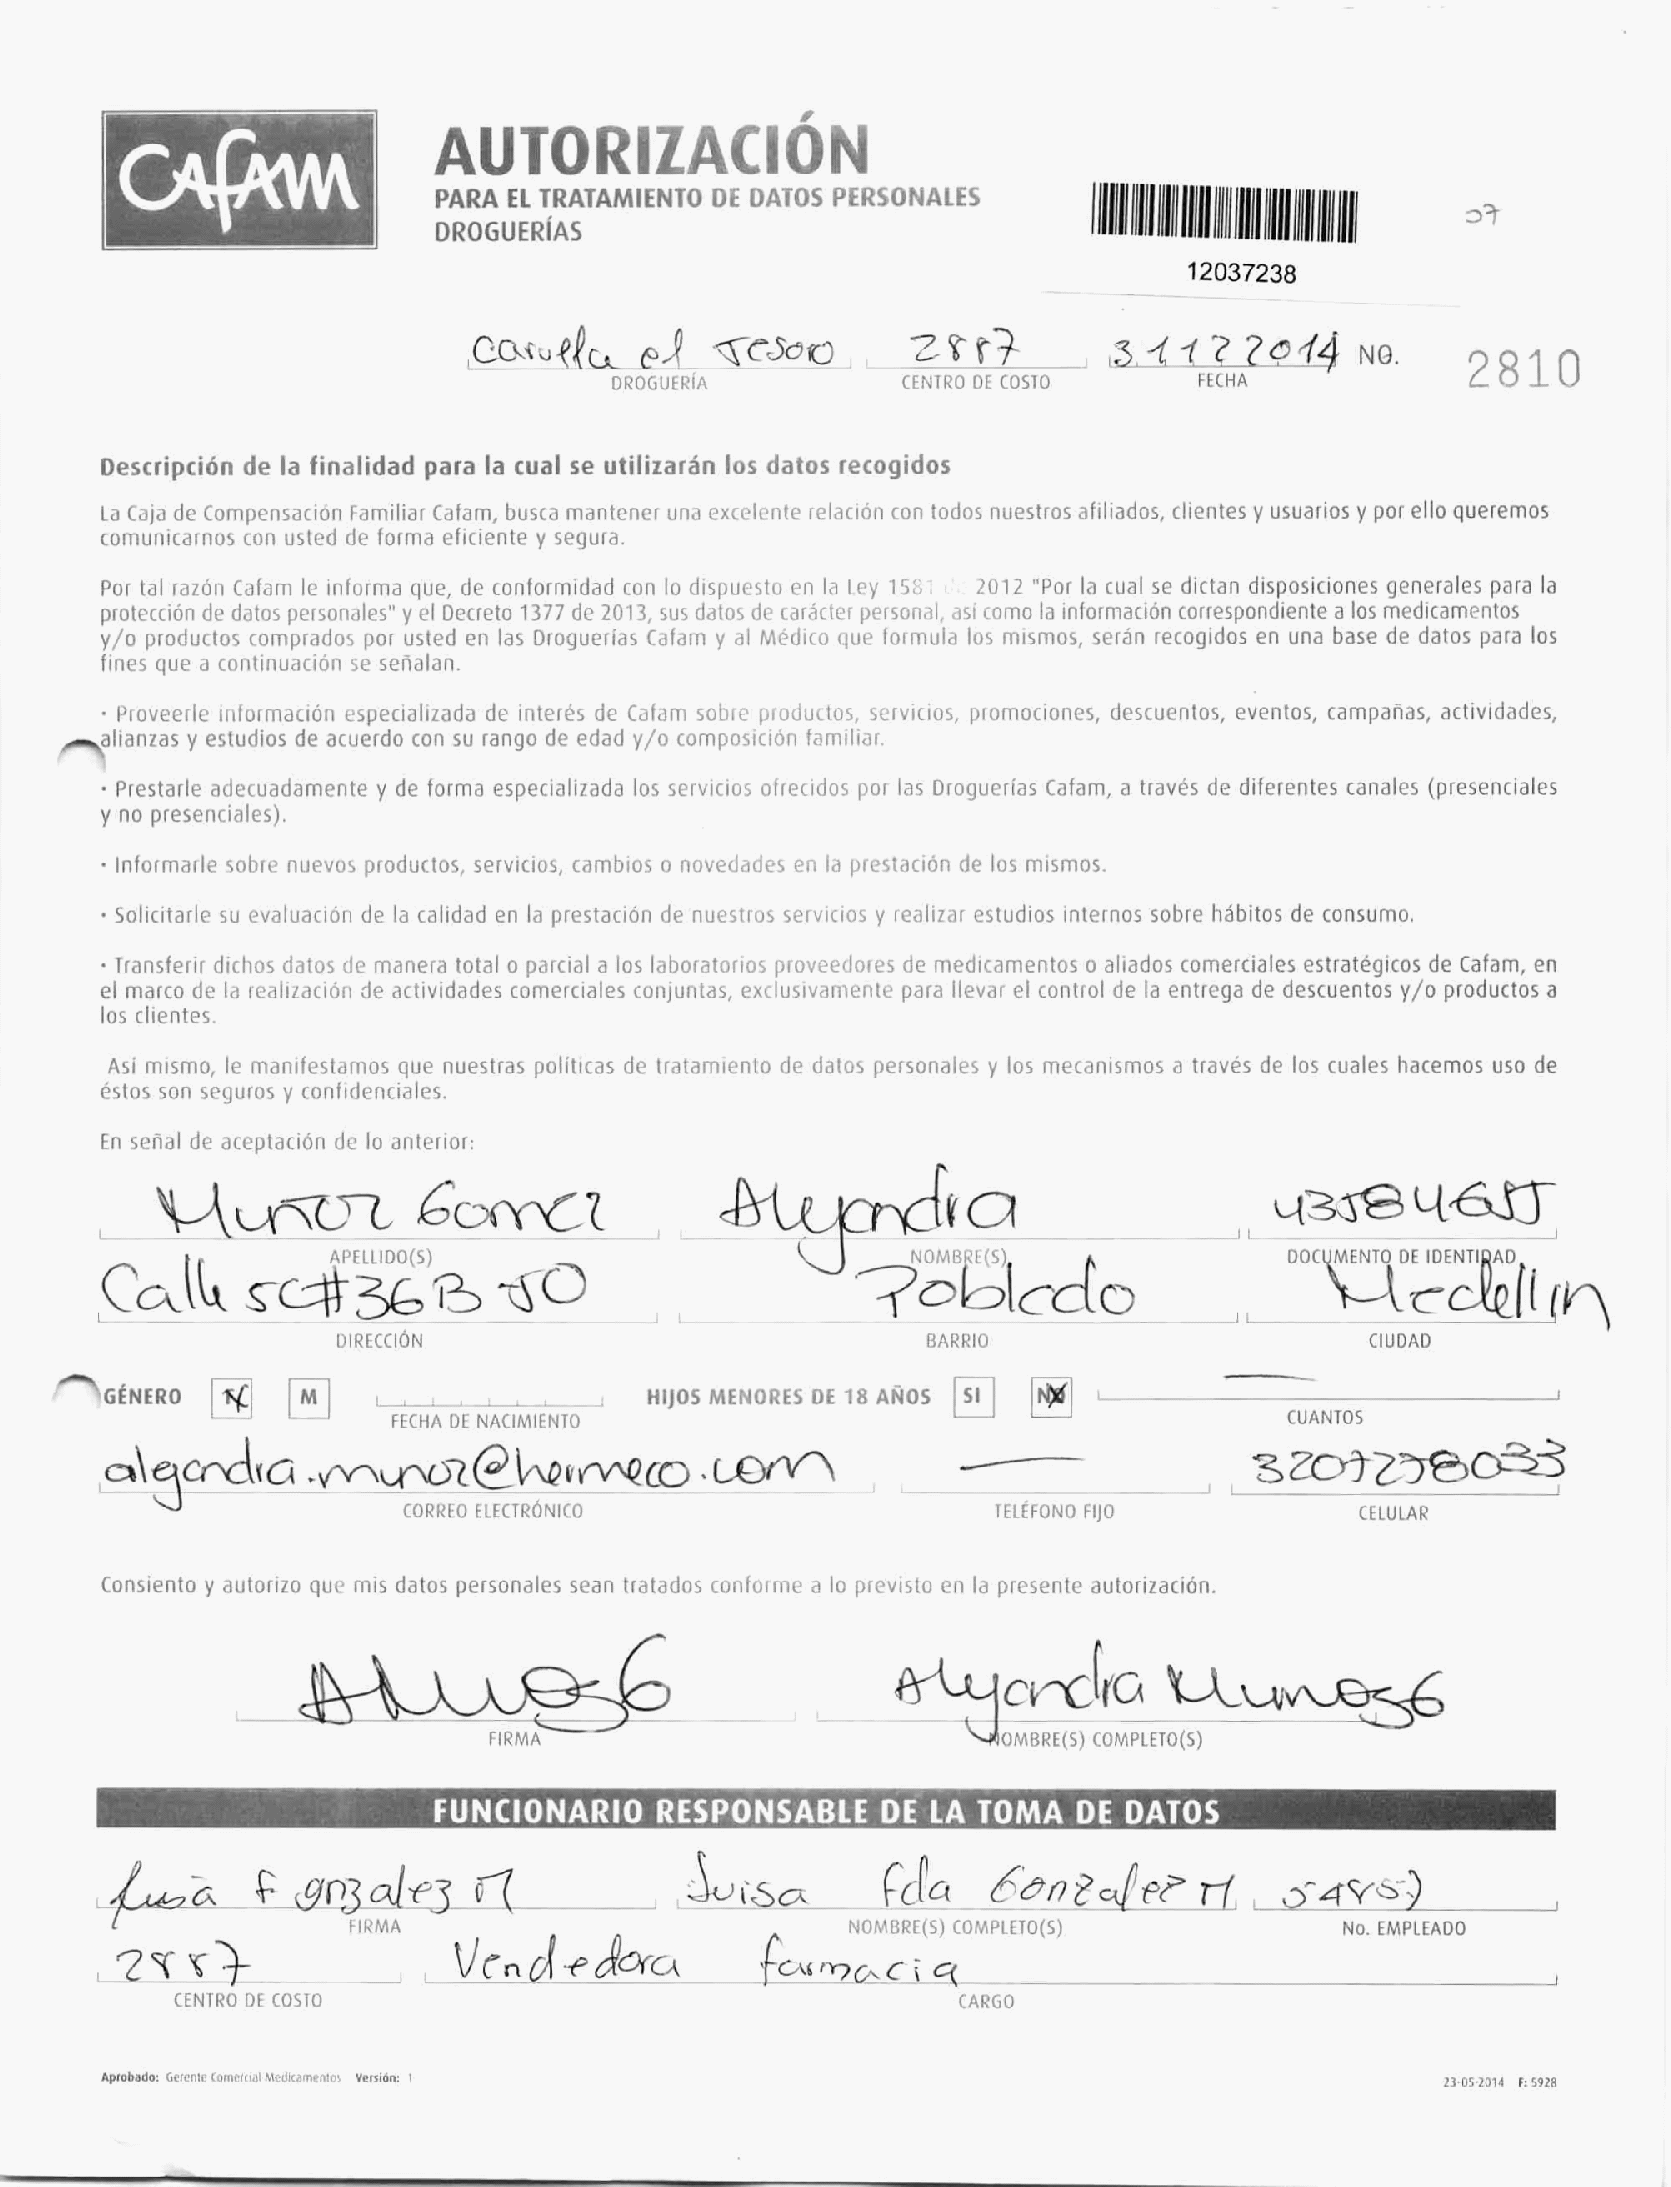 Cafam
AUTORIZACIÓN
PARA EL TRATAMIENTO DE DATOS PERSONALES
DROGUERÍAS
07
12037238
Carulla el Tesoro 2887 31122014 NO. 2810
DROGUERÍA CENTRO DE COSTO FECHA
Descripción de la finalidad para la cual se utilizarán los datos recogidos
La Caja de Compensación Familiar Cafam, busca mantener una excelente relación con todos nuestros afiliados, clientes y usuarios y por ello queremos
comunicarnos con usted de forma eficiente y segura.
Por tal razón Cafam le informa que, de conformidad con lo dispuesto en la Ley 1581 de 2012 "Por la cual se dictan disposiciones generales para la
protección de datos personales" y el Decreto 1377 de 2013, sus datos de carácter personal, así como la información correspondiente a los medicamentos
y/o productos comprados por usted en las Droguerías Cafam y al Médico que formula los mismos, serán recogidos en una base de datos para los
fines que a continuación se señalan.
· Proveerle información especializada de interés de Cafam sobre productos, servicios, promociones, descuentos, eventos, campañas, actividades,
alianzas y estudios de acuerdo con su rango de edad y/o composición familiar.
· Prestarle adecuadamente y de forma especializada los servicios ofrecidos por las Droguerías Cafam, a través de diferentes canales (presenciales
y no presenciales).
· Informarle sobre nuevos productos, servicios, cambios o novedades en la prestación de los mismos.
· Solicitarle su evaluación de la calidad en la prestación de nuestros servicios y realizar estudios internos sobre hábitos de consumo.
· Transferir dichos datos de manera total o parcial a los laboratorios proveedores de medicamentos o aliados comerciales estratégicos de Cafam, en
el marco de la realización de actividades comerciales conjuntas, exclusivamente para llevar el control de la entrega de descuentos y/o productos a
los clientes.
Así mismo, le manifestamos que nuestras políticas de tratamiento de datos personales y los mecanismos a través de los cuales hacemos uso de
éstos son seguros y confidenciales.
En señal de aceptación de lo anterior:
Muñoz Gomez Alejandra 43584655
APELLIDO(S) NOMBRE(S) DOCUMENTO DE IDENTIDAD
Calle 5C#36B 50 Poblado Medellin
DIRECCIÓN BARRIO CIUDAD
GÉNERO M HIJOS MENORES DE 18 AÑOS SI NO
FECHA DE NACIMIENTO CUANTOS
alejandra.munoz@hermeco.com
CORREO ELECTRÓNICO TELÉFONO FIJO CELULAR
Consiento y autorizo que mis datos personales sean tratados conforme a lo previsto en la presente autorización.
Alejandra Munoz G
FIRMA NOMBRE(S) COMPLETO(S)
FUNCIONARIO RESPONSABLE DE LA TOMA DE DATOS
Luisa F Gnzalez M Luisa Fda Gonzalez M
FIRMA NOMBRE(S) COMPLETO(S) No. EMPLEADO
2887 Vendedora farmacia
CENTRO DE COSTO CARGO
Aprobado: Gerente Comercial Medicamentos Versión: 1
23-05-2014 F: 5928